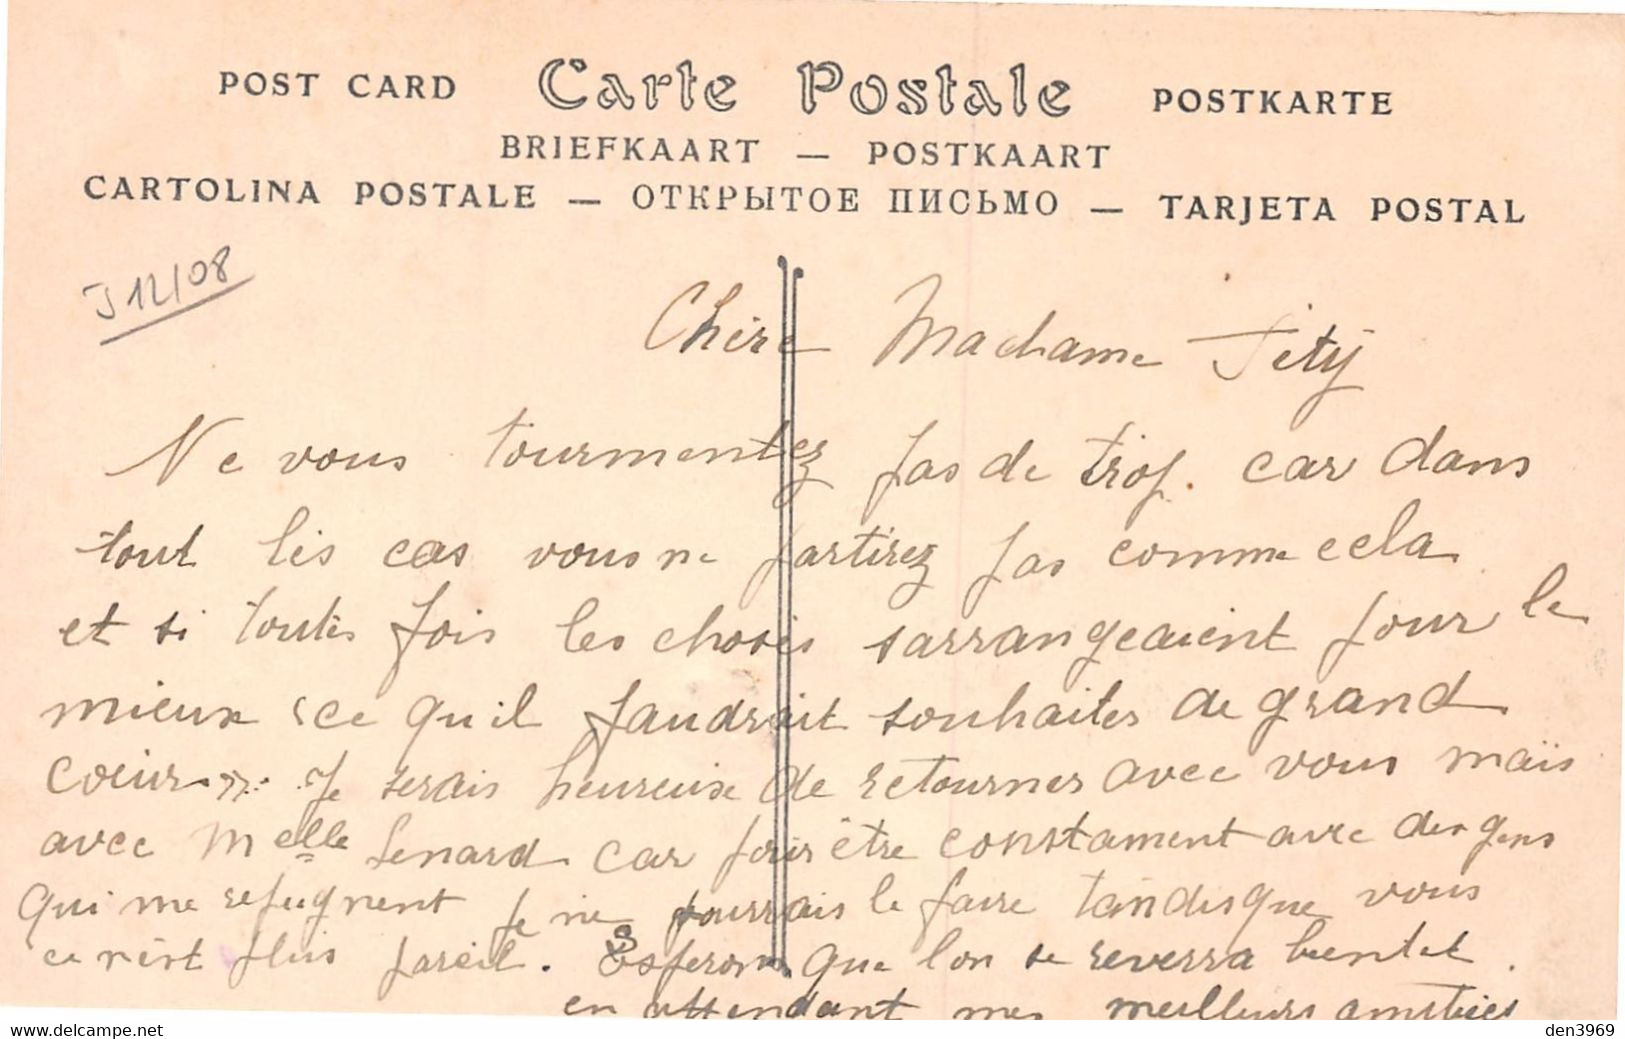 POST CARD Carte Postale POSTKARTE
BRIEFKAART — POSTKAART
CARTOLINA POSTALE — ОТКРЫТОЕ ПИСЬМО — TARJETA POSTAL
J 12/08
Chère Madame
Ne vous tourmentez pas de trop. car dans
tout les cas vous ne partirez pas comme cela
et si toutes fois les choses sarrangeaient pour le
mieux ce qu il faudrait souhaiter de grand
cœur. Je serais heureuse de retourner avec vous mais
avec Melle Lenard car pour être constament avec des gens
qui me repugnent je ne pourrais le faire tandisque vous
ce n'est plus pareil. Esperons que lon se reverra bientot.
en attendant mes meilleurs amitiés
www.delcampe.net
den3969